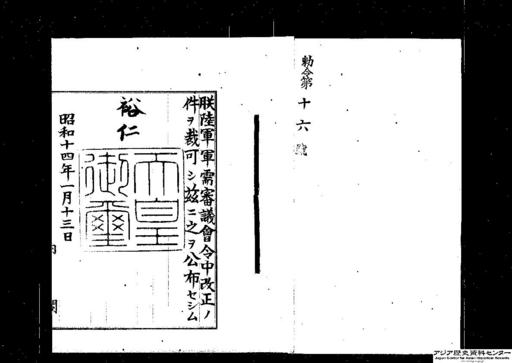 勅令第十六號
朕陸軍軍需審議會令中改正ノ
件ヲ裁可シ茲ニ之ヲ公布セシム
裕仁
天皇御璽
昭和十四年一月十三日
内閣
アジア歴史資料センター
Japan Center for Asian Historical Records